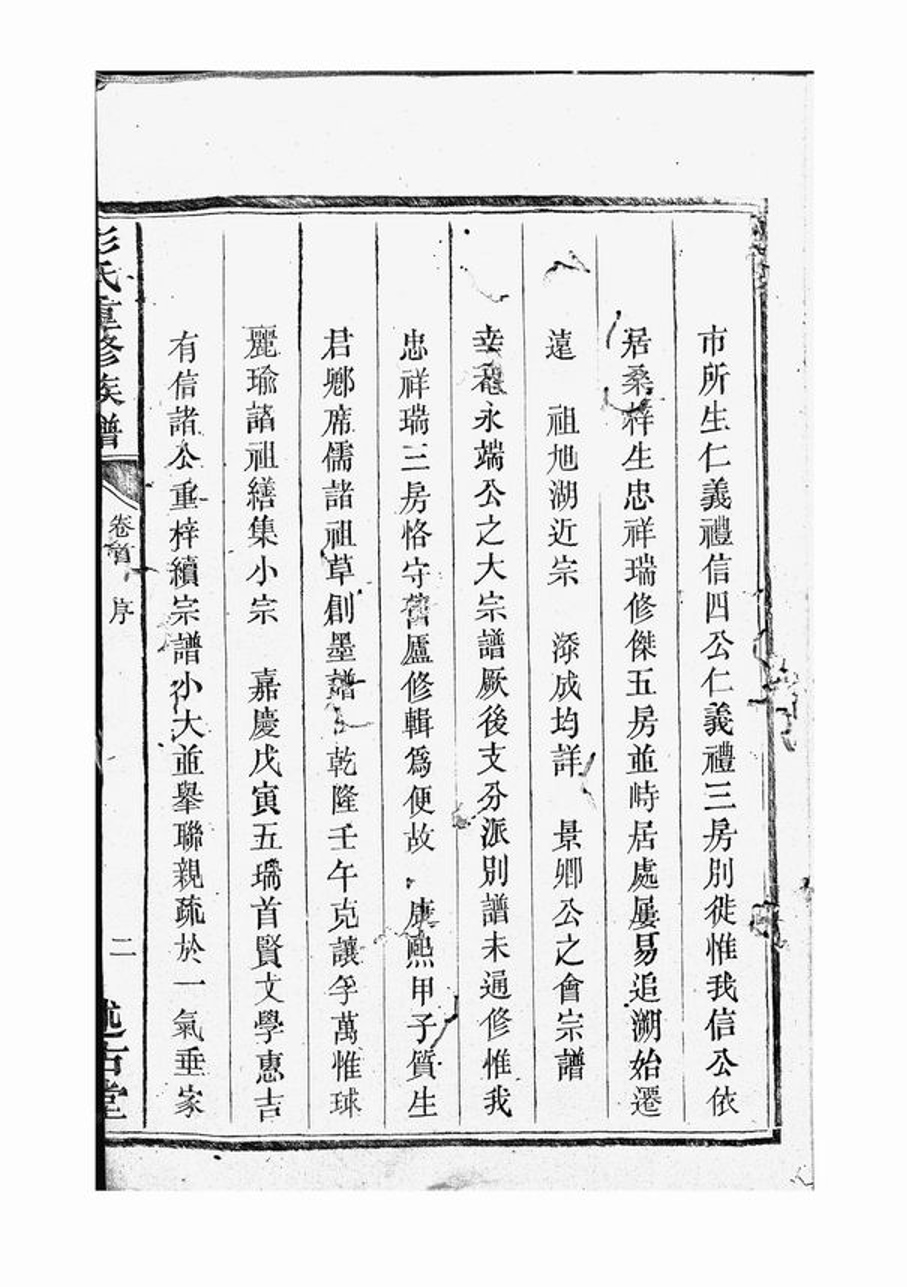 市所生仁義禮信四公仁義禮三房別徙惟我信公依
居桑梓生忠祥瑞修傑五房並峙居處屢易追溯始遷
遠　祖旭湖近宗　添成均詳　景卿公之會宗譜
幸　永端公之大宗譜厥後支分派別譜未通修惟我
忠祥瑞三房恪守舊廬修輯爲便故　康熙甲子質生
君鄉席儒諸祖草創墨譜　乾隆壬午克讓孚萬惟球
麗瑜諸祖繕集小宗　嘉慶戊寅五瑞首賢文學惠吉
有信諸公重梓續宗譜小大並舉聯親疏於一氣垂家
彭氏重修族譜
卷首　序
二
述古堂